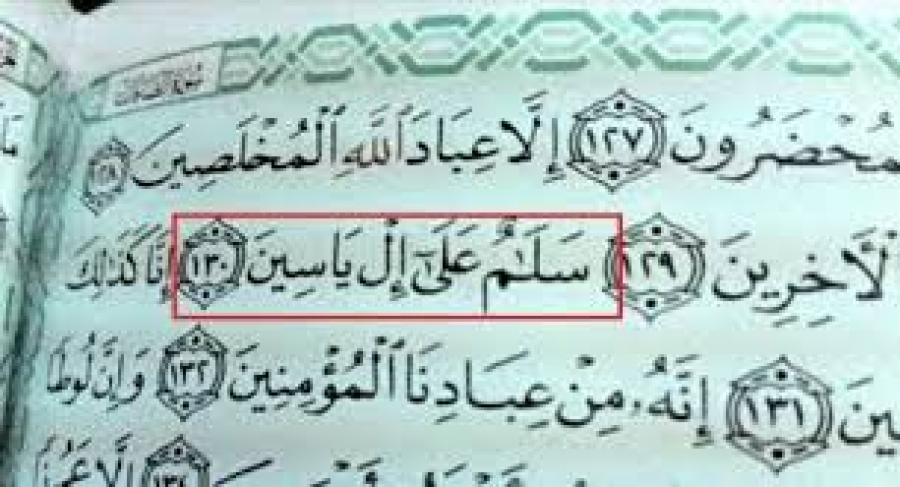 سورة الصافات
مُحْضَرُونَ ١٢٧ إِلَّا عِبَادَ ٱللَّهِ ٱلْمُخْلَصِينَ ١٢٨
لْآخِرِينَ ١٢٩ سَلَٰمٌ عَلَىٰٓ إِلْ يَاسِينَ ١٣٠ إِنَّا كَذَٰلِكَ
ينَ ١٣١ إِنَّهُۥ مِنْ عِبَادِنَا ٱلْمُؤْمِنِينَ ١٣٢ وَإِنَّ لُوطًا
١٣٤ إِلَّا عَجُوزًا